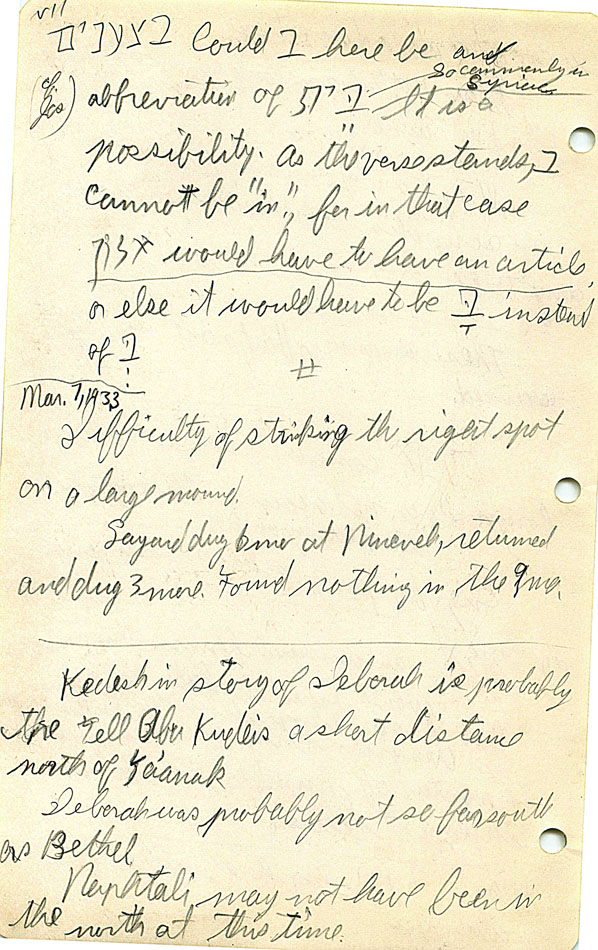 vii
בצענים Could ב here be and
so commonly in
Syriac
(cf Jos) abbreviation of בית It is a
possibility. As the verse stands, ב
cannot be "in", for in that case
אלון would have to have an article,
or else it would have to be בָ instead
of בְ
#
Mar. 7, 1933
Difficulty of striking the right spot
on a large mound.
Layard dug 6 mo at Nineveh, returned
and dug 3 more. Found nothing in the 9 mo.
Kedesh in story of Deborah is probably
the Tell Abu Kudeis a short distance
north of Ta'anak
Deborah was probably not so far south
as Bethel
Naphtali may not have been in
the north at this time.